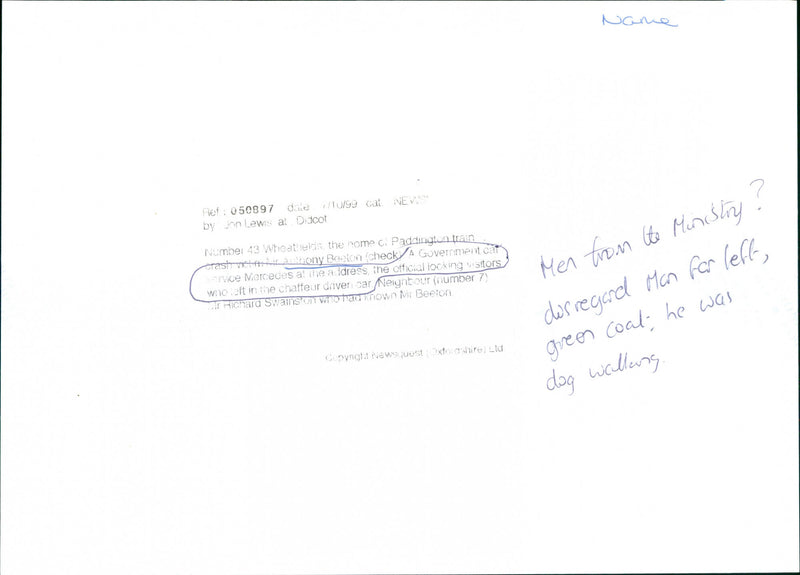 Name
Ref : 050897 date 7/10/99 cat. NEWS
by Jon Lewis at Didcot
Number 43 Wheatfields, the home of Paddington train
crash victim Mr Anthony Beeton (check) A Government car
service Mercedes at the address, the official looking visitors
who left in the chaffeur driven car. Neighbour (number 7)
Mr Richard Swainston who had known Mr Beeton
Copyright Newsquest (Oxfordshire) Ltd
Men from the Ministry?
disregard Man far left,
green coat; he was
dog walking.